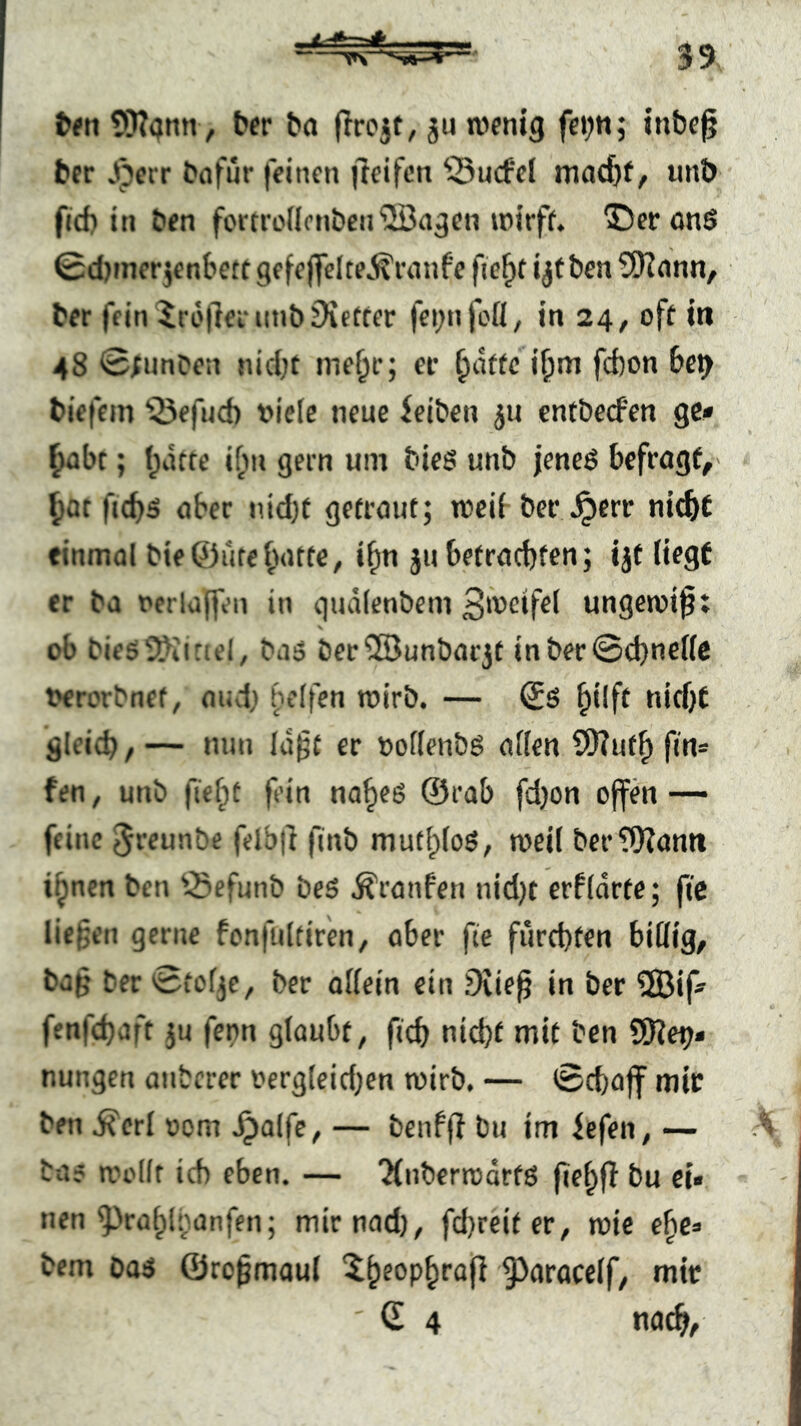 39
den Mann, der da strozt, zu wenig seyn; indeß
der Herr dafür seinen steifen Buckel macht, und
sich in den fortrollenden Wagen wirft. Der ans
Schmerzenbett gefesselte Kranke sieht izt den Mann,
der sein Tröster und Retter seyn soll, in 24, oft in
48 Stunden nicht mehr; er hätte ihm schon bey
diesem Besuch viele neue Leiden zu entdecken ge-
habt; hätte ihn gern um dies und jenes befragt,
hat sichs aber nicht getraut; weil der Herr nicht
einmal die Güte hatte, ihn zu betrachten; izt liegt
er da verlassen in quälendem Zweifel ungewiß:
ob dies Mittel, das der Wundarzt in der Schnelle
verordnet, auch helfen wird. — Es hilft nicht
gleich, — nun läßt er vollends allen Muth sin-
ken, und sieht sein nahes Grab schon offen —
seine Freunde selbst sind muthlos, weil der Mann
ihnen den Befund des Kranken nicht erklärte; sie
ließen gerne konsultiren, aber sie fürchten billig,
daß der Stolze, der allein ein Rieß in der Wis-
senschaft zu seyn glaubt, sich nicht mit den Mey-
nungen anderer vergleichen wird. — Schaff mir
den Kerl vom Halse, — denkst du im Lesen, —
das wollt ich eben. — Anderwärts siehst du ei-
nen Prahlhansen; mir nach, schreit er, wie ehe-
dem das Großmaul Theophrast Paracels, mir
E 4 nach,